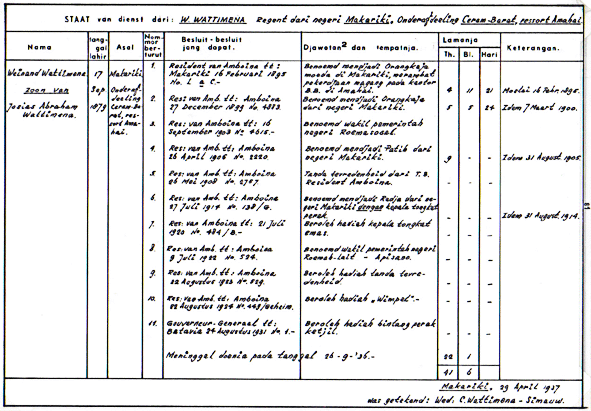 STAAT van dienst dari: W. WATTIMENA Regent dari negeri Makariki, Onderafdeeling Ceram-Barat, ressort Amahai.
Nama
tanggal lahir
Asal
Nommor berturut
Besluit-besluit jang dapat.
Djawatan2 dan tempatnja.
Lamanja
Th. Bl. Hari
Keterangan.
Weinand Wattimena
Zoon van
Josias Abraham
Wattimena.
17
Sep.
1879
Makariki,
Onderafdeeling
Ceram-Barat, ressort Amahai.
1. Resident van Amboina tt:
Makariki 16 Februari 1895
No. L a C.-
Benoemd mendjadi Orangkaja
moeda di Makariki, merambat
pekerdjaan magang pada kantor
B.B. di Amahai.
4 11 21
Moelai 16 Febr. 1895.
2. Res: van Amb: Amboina
27 December 1899 No. 4883.
Benoemd mendjadi Orangkaja
dari negeri Makariki.
5 5 24
Idem 7 Maart 1900.
3. Res: van Amb: tt: 16
September 1903 No 4615.-
Benoemd wakil pemerintah
negeri Roemasosal.
- - -
4. Res: van Amb: Amboina
26 April 1906 No. 2220.
Benoemd mendjadi Patih dari
negeri Makariki.
9 - -
Idem 31 August 1905.
5. Res: van Amb: Amboina
26 Mei 1908 No. 2787.
Tanda tevredenheid dari T.B.
Resident Amboina.
- - -
6. Res: van Amb: Amboina
27 Juli 1914 No. 138/G.
Benoemd mendjadi Radja dari negeri Makariki dengan kepala tongkat
perak.
- - -
Idem 31 August 1914.
7. Res: van Amboina tt: 21 Juli
1920 No. 484/B.-
Beroleh hadiah kepala tongkat
emas.
- - -
8. Res: van Amb. tt: Amboina
9 Juli 1922 No. 524.
Benoemd wakil pemerintah negeri
Roemah-lait - Apisano.
- - -
9. Res: van Amb: tt: Amboina
22 Augustus 1923 No. 829.
Beroleh hadiah tanda tevredenheid.
- - -
10. Res: van Amb: tt: Amboina
22 Augustus 1924 No. 448/Geheim.
Beroleh hadiah „Wimpel".-
- - -
11. Gouverneur-Generaal tt:
Batavia 24 Augustus 1931 No. 1.-
Beroleh hadiah bintang perak
ketjil.
- - -
Meninggal doenia pada tanggal 26-9-'36.-
22 1
41 6
Makariki, 29 April 1937
was getekend: Wed. C. Wattimena - Simauw.
81